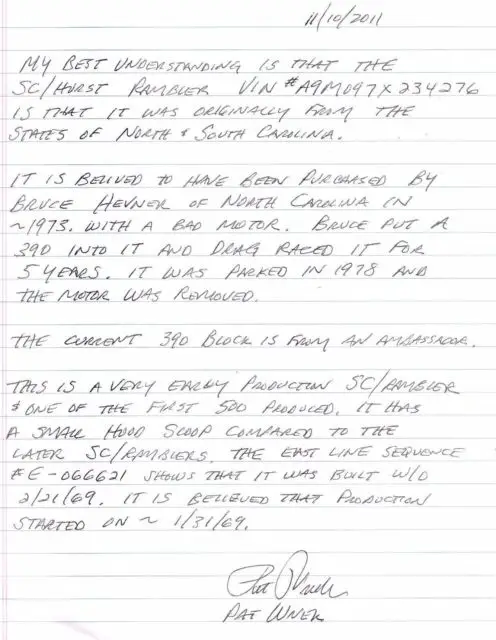 11/10/2011
MY BEST UNDERSTANDING IS THAT THE
SC/HURST RAMBLER VIN #A9M097X234276
IS THAT IT WAS ORIGINALLY FROM THE
STATES OF NORTH & SOUTH CAROLINA.
IT IS BELIVED TO HAVE BEEN PURCHASED BY
BRUCE HEVNER OF NORTH CAROLINA IN
~1973. WITH A BAD MOTOR. BRUCE PUT A
390 INTO IT AND DRAG RACED IT FOR
5 YEARS. IT WAS PARKED IN 1978 AND
THE MOTOR WAS REMOVED.
THE CURRENT 390 BLOCK IS FROM AN AMBASSADOR.
THIS IS A VERY EARLY PRODUCTION SC/RAMBLER
& ONE OF THE FIRST 500 PRODUCED. IT HAS
A SMALL HOOD SCOOP COMPARED TO THE
LATER SC/RAMBLERS. THE EAST LINE SEQUENCE
#E-066621 SHOWS THAT IT WAS BUILT W/O
2/21/69. IT IS BELIEVED THAT PRODUCTION
STARTED ON ~ 1/31/69.
PAT